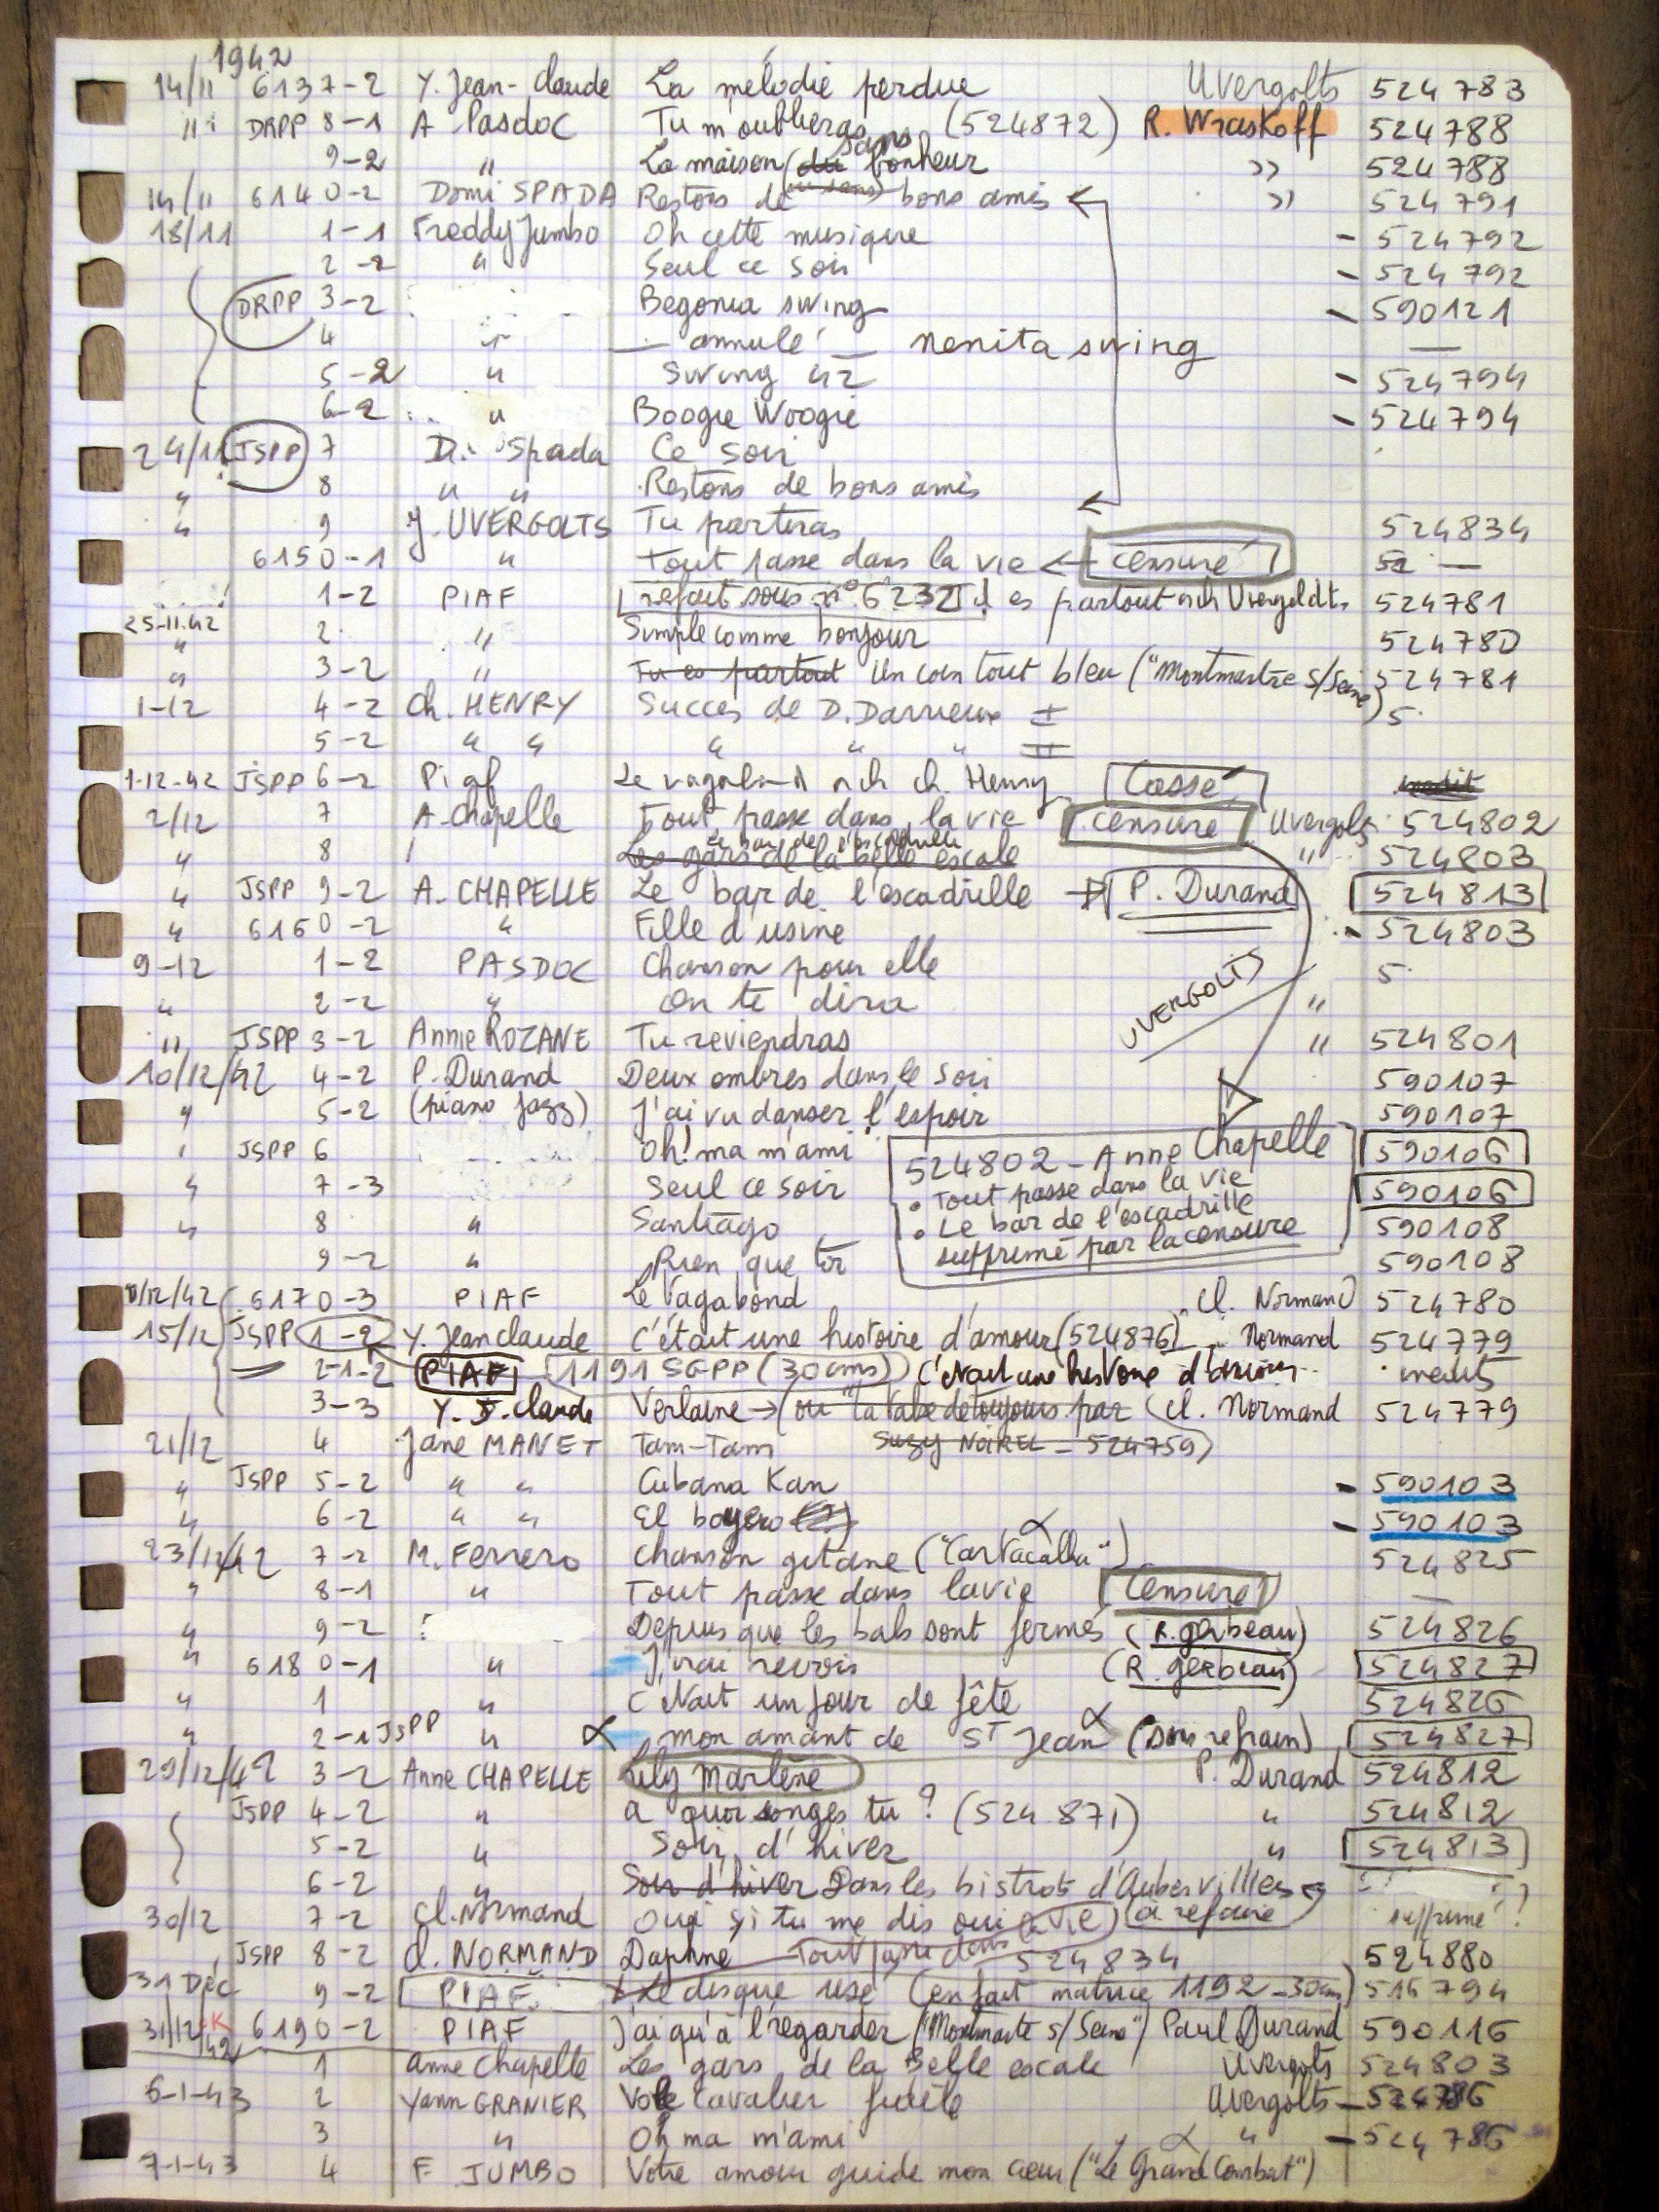 1942
14/11 6137-2 Y. Jean-Claude La mélodie perdue Uvergolts 524783
" DRPP 8-1 A Pasdoc Tu m'oublieras (524872) R. Wraskoff 524788
sans
9-2 " La maison (du bonheur " 524788
(ou sans)
14/11 6140-2 Domi SPADA Restons de bons amis ← " 524791
18/11 1-1 Freddy Jumbo Oh cette musique - 524792
2-2 " Seul ce soir - 524792
DRPP 3-2 Begonia swing - 590121
4 " — annulé — nenita swing —
5-2 " Swing 42 - 524794
6-2 " Boogie Woogie - 524794
24/11 JSPP 7 D. Spada Ce soir
" 8 " " Restons de bons amis ←
" 9 J. UVERGOLTS Tu partiras 524834
6150-1 " Tout passe dans la vie ← censuré 52 —
1-2 PIAF refait sous n° 6232 ! es partout orch Uvergoldts 524781
25-11-42
" 2 " Simple comme bonjour 524780
" 3-2 " Tu es partout Un coin tout bleu ("Montmartre s/Seine) 524781
1-12 4-2 Ch. HENRY Succès de D. Darrieux I 5
5-2 " " " " " II
1-12-42 JSPP 6-2 Piaf Le vagabond orch ch. Henry Cassé inédit
2/12 7 A. Chapelle Tout passe dans la vie censuré Uvergolts 524802
Le bar de l'escadrille
" 8 Les gars de la belle escale " 524803
" JSPP 9-2 A. CHAPELLE Le bar de l'escadrille → P. Durand 524813
" 6160-2 " Fille d'usine - 524803
9-12 1-2 PASDOC Chanson pour elle 5
UVERGOLTS
" 2-2 " On te dira "
" JSPP 3-2 Annie ROZANE Tu reviendras " 524801
10/12/42 4-2 P. Durand Deux ombres dans le soir 590107
" 5-2 (piano jazz) J'ai vu danser l'espoir 590107
" JSPP 6 Oh! ma m'ami 590106
524802 - Anne Chapelle
" 7-3 Seul ce soir 590106
• Tout passe dans la vie
" 8 " Santiago 590108
• Le bar de l'escadrille
supprimé par la censure
9-2 " Rien que toi 590108
6170-3 PIAF Le Vagabond Cl. Normand 524780
15/12 JSPP 1-2 Y. Jean claude C'était une histoire d'amour (524876) Normand 524779
2-1-2 PIAF 1191 SGPP (30cms) C'était une histoire d'amour.. inédits
3-3 Y. J. Claude Verlaine → (ou la valse de toujours par Cl. Normand 524779
21/12 4 Jane MANET Tam-Tam Suzy NOIREL - 524759)
" JSPP 5-2 " " Cubana Kan - 590103
" 6-2 " " El boyero - 590103
23/12/42 7-2 M. Ferrero Chanson gitane ("Cartacalha") 524825
" 8-1 " Tout passe dans la vie Censuré —
" 9-2 Depuis que les bals sont fermés (R. gerbeau) 524826
" 6180-1 " J'irai revoir (R. gerbeau) 524827
" 1 " C'était un jour de fête 524826
" 2-1 JSPP " mon amant de St Jean (sans refrain) 524827
29/12/42 3-2 Anne CHAPELLE Lily Marlène P. Durand 524812
JSPP 4-2 " A quoi songes tu ? (524871) " 524812
5-2 " Soir d'hiver " 524813
6-2 " Soir d'hiver Dans les bistrots d'Aubervilliers ← ?
30/12 7-2 Cl. Normand Oui si tu me dis oui à refaire supprimé ?
JSPP 8-2 Cl. NORMAND Daphné Tout passe dans la vie 524834 524880
31 Déc 9-2 PIAF Le disque usé (en fait matrice 1192 - 30cm) 516794
31/12/42 OK 6190-2 PIAF J'ai qu'à l'regarder ("Montmarte s/Seine") Paul Durand 590116
1 anne Chapelle Les gars de la Belle escale Uvergolts 524803
6-1-43 2 Yann GRANIER Votre Cavalier fidèle Uvergolts - 524786
3 " Oh ma m'ami " - 524786
7-1-43 4 F. JUMBO Votre amour guide mon cœur ("Le Grand Combat")